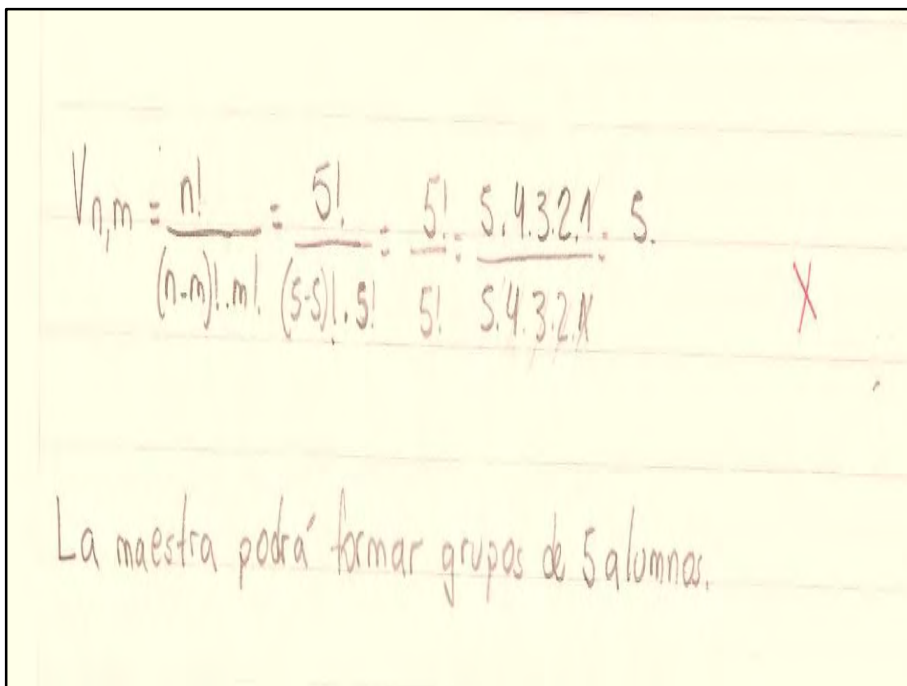 V n,m = n! / (n-m)!.m! = 5! / (5-5)!.5! = 5! / 5! = 5.4.3.2.1 / 5.4.3.2.1 = 5.
X
La maestra podrá formar grupos de 5 alumnos.